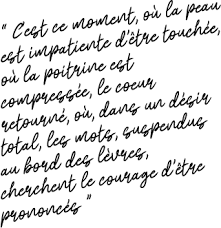 " C'est ce moment, où la peau
est impatiente d'être touchée,
où la poitrine est
compressée, le coeur
retourné, où, dans un désir
total, les mots, suspendus
au bord des lèvres,
cherchent le courage d'être
prononcés "